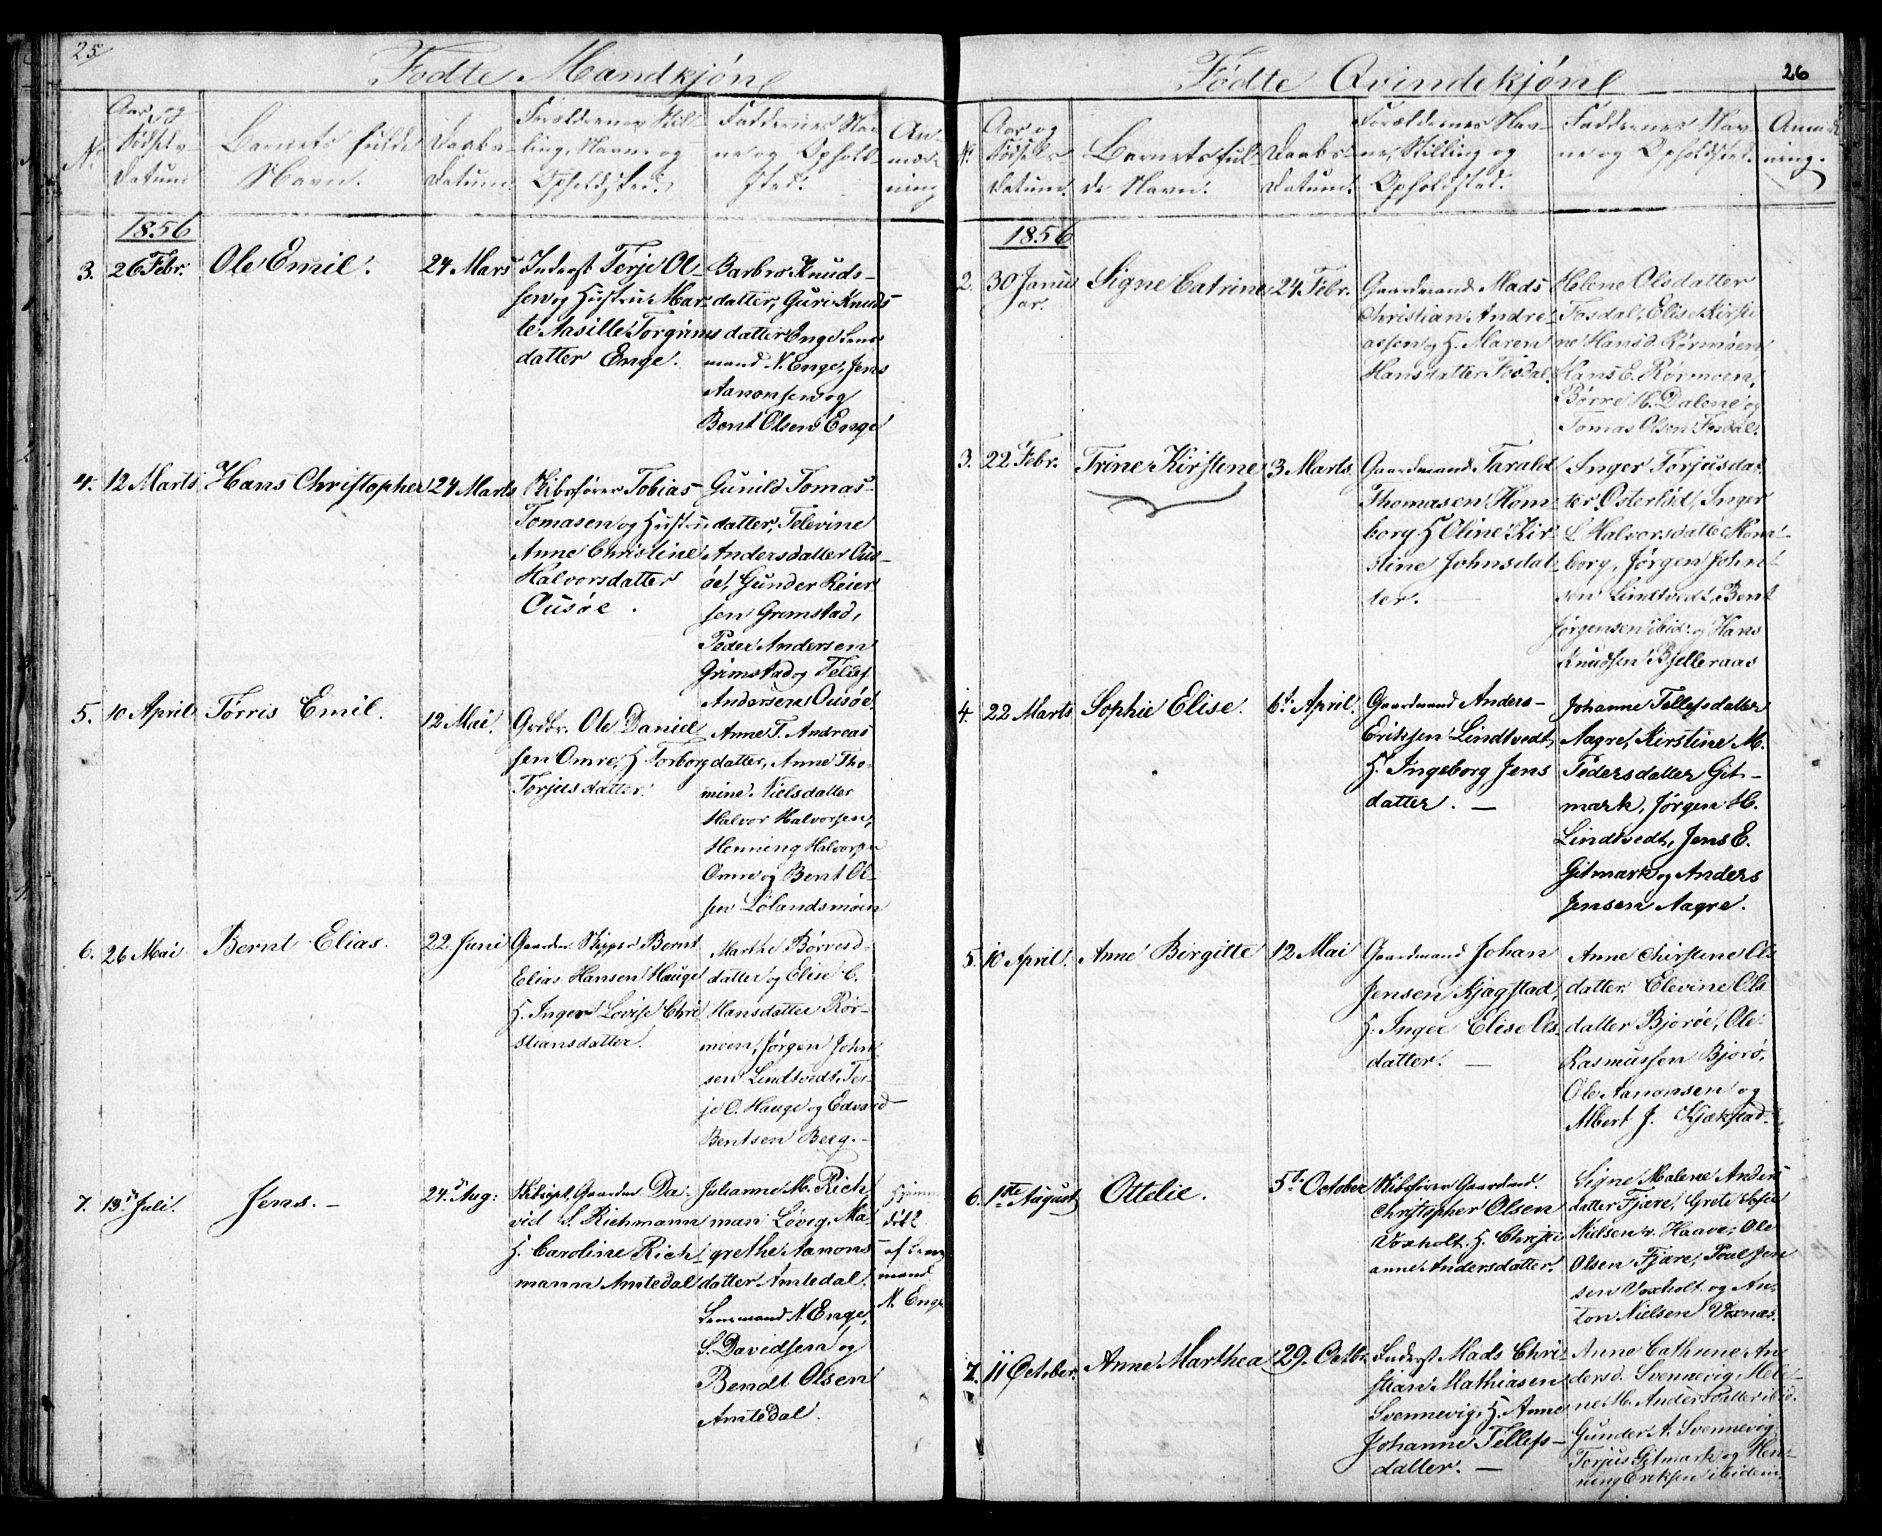 25
Fødte Mandkjøn
No
Aar og
Fødsels-
Datum
Barnets fulde
Navn.
Daabs-
Datum.
Forældrenes Stil-
ling, Navne og
Opholdsted.
Faddernes Nav-
ne og Ophold-
sted.
An-
mærk-
ning
1856
3.
26 Febr.
Ole Emil.
24 Mars
Inderst Terje Ol-
sen og Hustrue Mar-
te Aasille Torgrims
datter Enge.
Barbro Knuds-
datter, Guri Knuds
datter Enge Lens
mand N. Enge, Jens
Aanonsen og
Bent Olsen Enge
4.
12 Marts
Hans Christopher
24 Marts
Skibsfører Tobias
Tomasen og Hustru
Anne Christine
Halvorsdatter
Ousøe.
Gunild Tomas-
datter, Televine
Andersdatter Ous-
øe, Gunder Reier
sen Gremstad,
Peder Andersen
Grimstad og Tellef
Andersen Ousøe
5.
10 April
Tørris Emil.
12 Mai.
Grdbr. Ole Daniel
sen Omre, H Torborg
Torjusdatter.
Anne T. Andreas
datter, Anne Tho-
mine Nielsdatter
Halvor Halvorsen,
Henning Halvorsen
Omre og Bent Ol-
sen Lølandsmoen
6.
26 Mai
Bernt Elias.
22 Juni
Gaardm. Skipper Bernt
Elias Hansen Hauge
H. Inger Lovise Chri
stiansdatter.
Marthe Børresd-
datter og Elise C.
Hansdatter Rør-
moen, Jørgen John
sen Lindtvedt, Ter-
je O. Hauge og Edvard
Bentsen Berg.-
7.
13de Juli.
Jens. -
24de Aug:
Skibscpt. Gaardm Da-
vid S. Richmann
H. Caroline Rich
mann Amtedal
Julianne M. Rich
man Løvig, Ma-
grethe Aanons
datter Amtedal,
Lensmand N. Enge,
S. Davidsen og
Bendt Olsen
Amtedal.
Hjemme
døbt
af Lens
mand
N. Enge
26
Fødte Qvindekjøn
No
Aar og
Fødsels-
Datum.
Barnets ful-
de Navn.
Daabs-
Datum.
Forældrenes Nav-
ne, Stilling og
Opholdsted.
Faddernes Nav-
ne og Opholdsted.
Anmærk-
ning.
1856
2.
30 Janu
ar.
Signe Catrine
24 Febr.
Gaardmand Mads
Christian Andre-
assen og H. Maren
Hansdatter Fosdal.
Helene Olsdatter
Fosdal, Elise Kirsti
ne Hansd. Rørmoen
Hans C. Rørmoen,
Børre H. Dalene og
Tomas Olsen Fosdal.
3.
22 Febr.
Trine Kirstene
3 Marts.
Gaardmand Tarald
Thomasen Hom
borg H Oline Kir-
stine Johnsdat-
ter.
Inger Torjusdat
ter Østerlid, Inger
L Halvorsdatte Hom-
borg, Jørgen John-
sen Lindtvedt, Bent
Jørgensen ibid. og Hans
Knudsen Bjelleraas
4.
22 Marts
Sophie Elise.
6te April.
Gaardmand Anders-
Eriksen Lindtvedt,
H. Ingeborg Jens
datter. —
Johanne Tellefsdatter
Aagre, Kirstine M.
Pedersdatter Git-
mark, Jørgen H.
Lindtvedt, Jens E.
Gitmark og Anders
Jensen Aagre.
5.
10 April.
Anne Birgitte
12 Mai
Gaardmand Johan
Jensen Kjagstad,
H. Inger Elise Ols
datter. —
Anne Chirstene Ols
datter Elevine Ols
datter Bjorøe, Ole
Rasmussen Bjorø,
Ole Aanonsen og
Albert J. Kjækstad.
6.
1ste August
Ottelie.
5te October
Skibsfører Gaardmd.
Christopher Olsen
Voxholt. H. Christi
anne Andersdatter.
Signe Malene Anders
datter Fjære, Grete Sofie
Nielsen v. Haave, Ole
Olsen Fjære, Poul Jen
sen Voxholt og An-
ton Nielsen Voxnæs.
7.
11 October.
Anne Marthea
29. Octbr.
Inderst Mads Chri-
stian Mathiasen
Svennevig, H. Anne
Johanne Tellefs-
datter. —
Anne Cathrine An
dersd. Svennevig, Meli-
ne M. Andersdatter ibid.
Gunder A. Svennevig
Torjus Gitmark og Hen-
ning Eriksen ibidem.